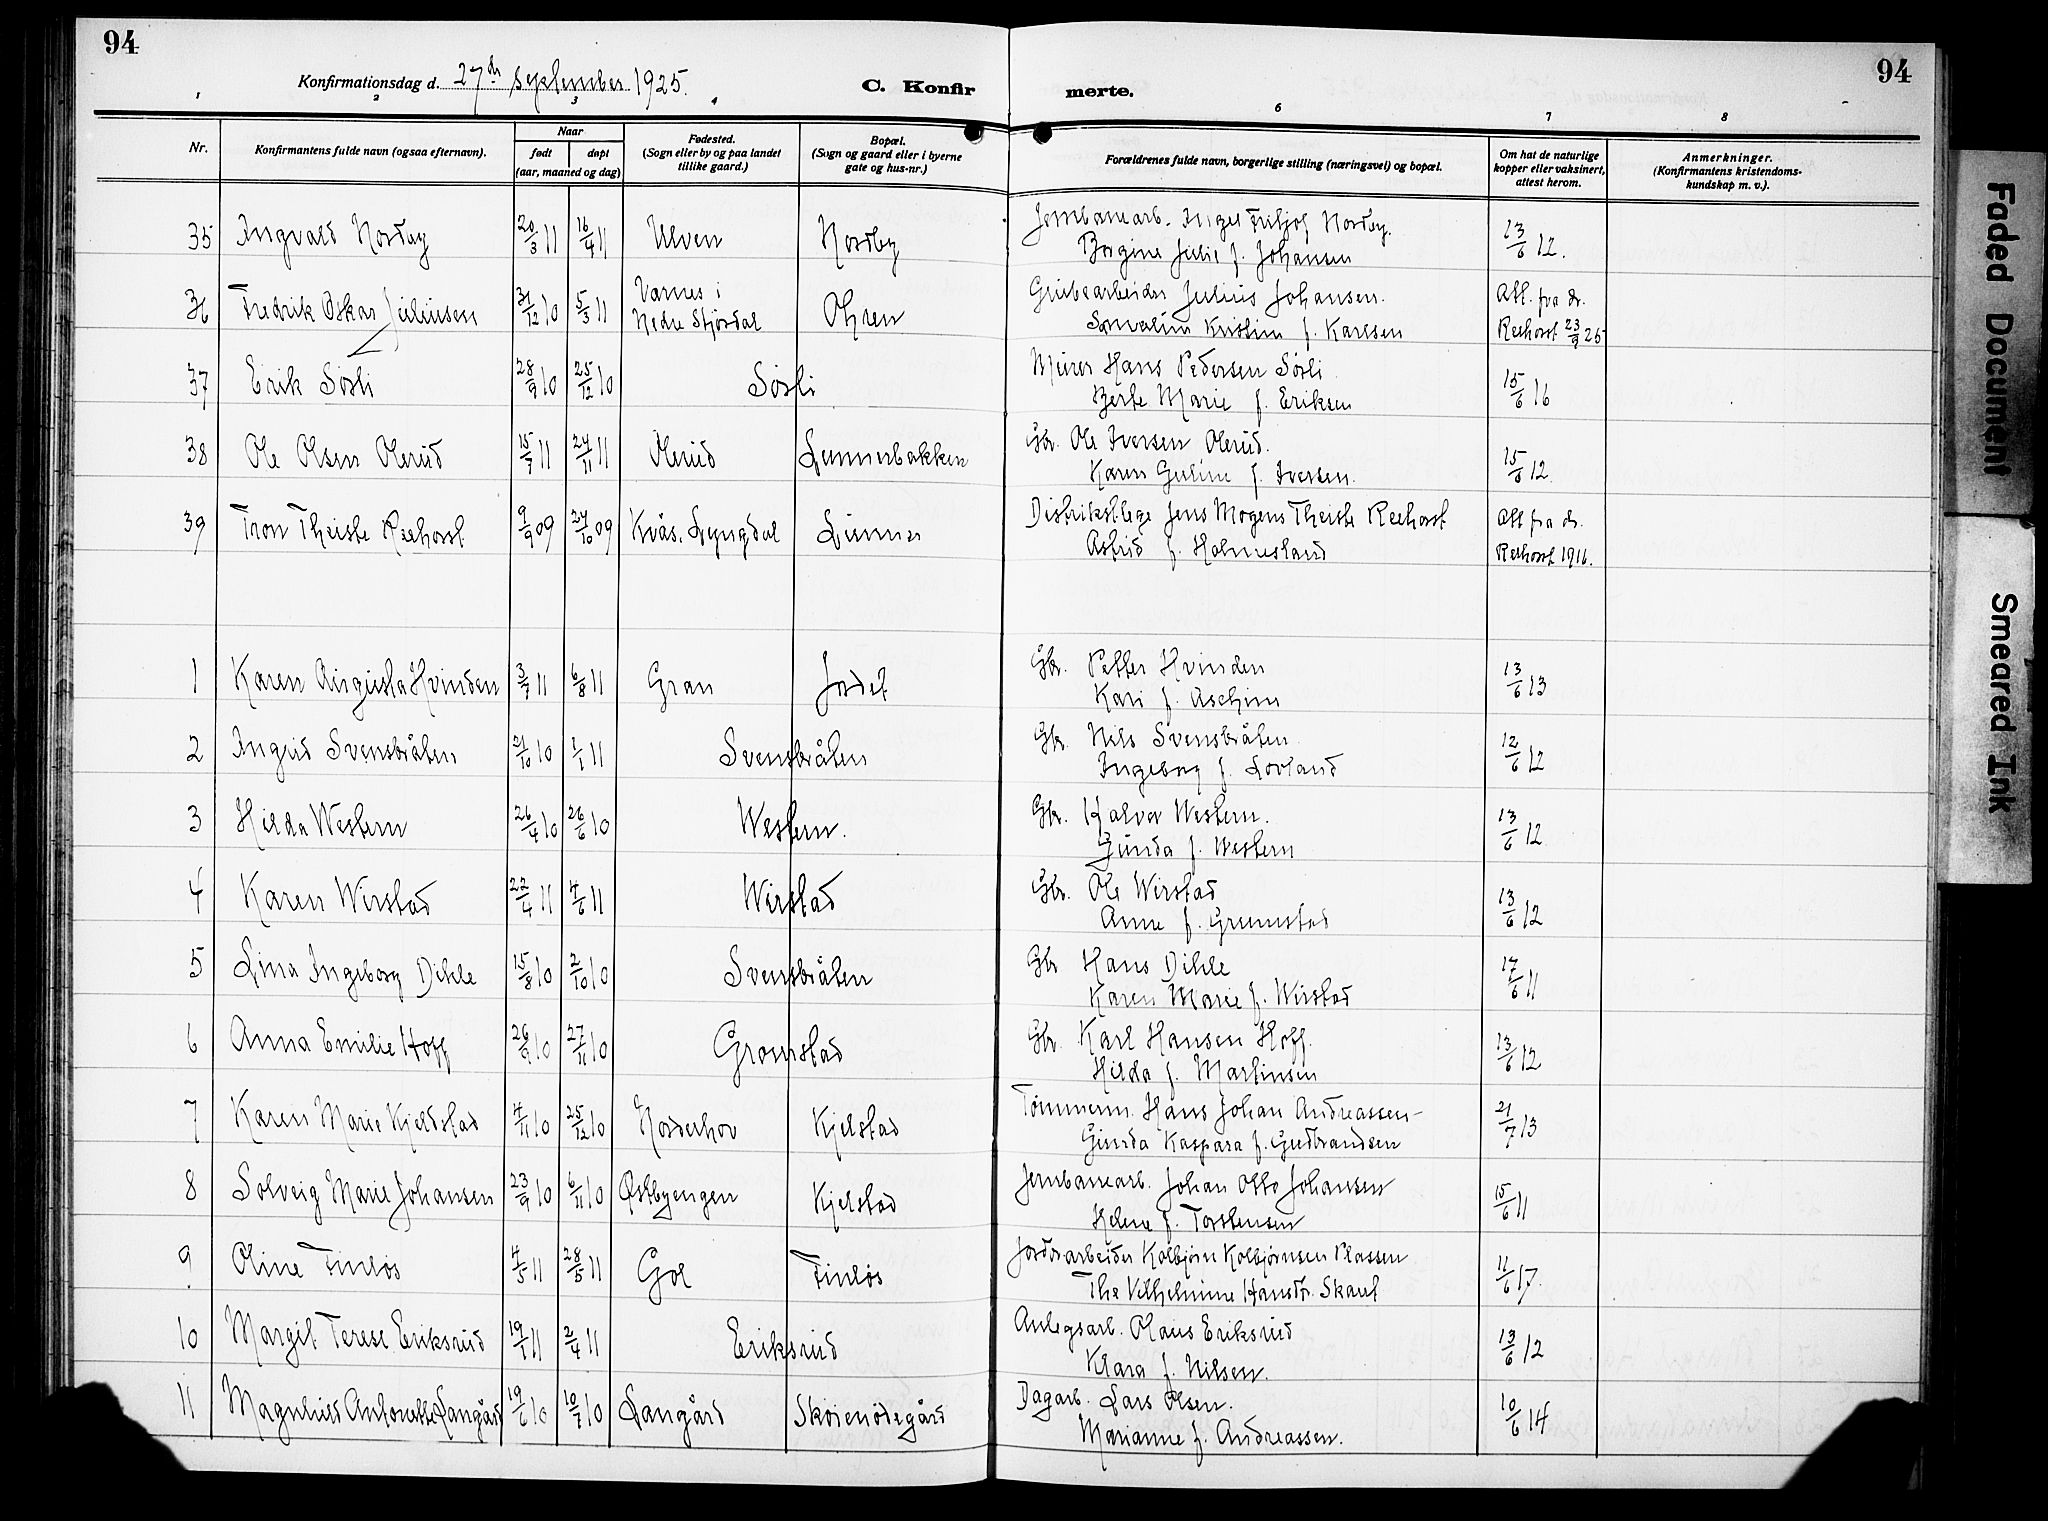 94
94
Konfirmationsdag d. 27de September 1925.
C. Konfirmerte.
1 2 3 4 6 7 8
Nr.
Konfirmantens fulde navn (ogsaa efternavn).
Naar
født døpt
(aar, maaned og dag)
Fødested.
(Sogn eller by og paa landet
tillike gaard.)
Bopæl.
(Sogn og gaard eller i byerne
gate og hus-nr.)
Forældrenes fulde navn, borgerlige stilling (næringsvei) og bopæl.
Om hat de naturlige
kopper eller vaksinert,
attest herom.
Anmerkninger.
(Konfirmantens kristendoms-
kundskap m. v.).
35 Ingvald Nordby 20/3 11 16/4 11 Ulven Nordby Jernbanearb. Inget Fritjof Nordby. 13/6 12.
Borgine Julie f. Johansen
36 Fredrik Oskar Juliussen 31/12 10 5/3 11 Værnes i Nedre Stjørdal Ohren Grubearbeider Julius Johansen. Att. fra dr.
Kristine f. Karlsen Reehorst 23/9 25
37 Erik Sørli 28/9 10 25/12 10 Sørli Murer Hans Pedersen Sørli 15/6 16
Berte Marie f. Eriksen
38 Ole Olsen Olerud 15/7 11 24/11 11 Olerud Lunnerbakken Gbr. Ole Iversen Olerud. 15/6 12.
Karen Guline f. Iversen.
39 Tron Theiste Reehorst 9/9 09 24/10 09 Kvås. Lyngdal Lunner Distrikstlege Jens Mogens Theiste Reehorst Att fra dr.
Astrid f. Holmesland Reehorst 1916.
1 Karen Augusta Hvinden 3/7 11 6/8 11 Gran Jordet Gbr. Petter Hvinden 13/6 13
Kari f. Aschim
2 Ingrid Svensbråten 21/10 10 1/1 11 Svensbråten Gbr. Nils Svensbråten 12/6 12
Ingeborg f. Lovland
3 Hilda Western 26/4 10 26/6 10 Western. Gbr. Halvor Western. 13/6 12
Gunda f. Western
4 Karen Wirstad 22/4 11 4/6 11 Wirstad Gbr. Ole Wirstad 13/6 12
Anne f. Grumstad
5 Lina Ingeborg Dihle 15/8 10 2/10 10 Svensbråten Gbr Hans Dihle 17/6 11
Karen Marie f. Wirstad
6 Anna Emilie Hoff 26/9 10 27/11 10 Gromstad Gbr. Karl Hansen Hoff. 13/6 12
Hilda f. Martinsen
7 Karen Marie Kjeldstad 4/11 10 25/12 10 Norderhov Kjelstad Tømmerm. Hans Johan Andreassen- 21/7 13
Gunda Kaspara f. Gudbrandsen
8 Solveig Marie Johansen 23/9 10 6/11 10 Østbyengen Kjelstad Jernbanearb. Johan Otto Johansen 15/6 11
Helene f. Torstensen
9 Oline Finløs 4/5 11 28/5 11 Gol Finløs Jordarbeider Kolbjørn Kolbjørnsen Plassen 11/6 17.
Thea Vilhelmine Hansdr. Skaut
10 Margit Terese Eriksrud 19/1 11 2/4 11 Eriksrud Anlegsarb. Olaus Eriksrud 13/6 12
Klara f. Nilsen.
11 Magnhild Antonette Langård 19/6 10 10/7 10 Langård Skøienødegård Dagarb. Lars Olsen. 10/6 14
Marianne f. Andreassen.
Faded Document
Smeared Ink